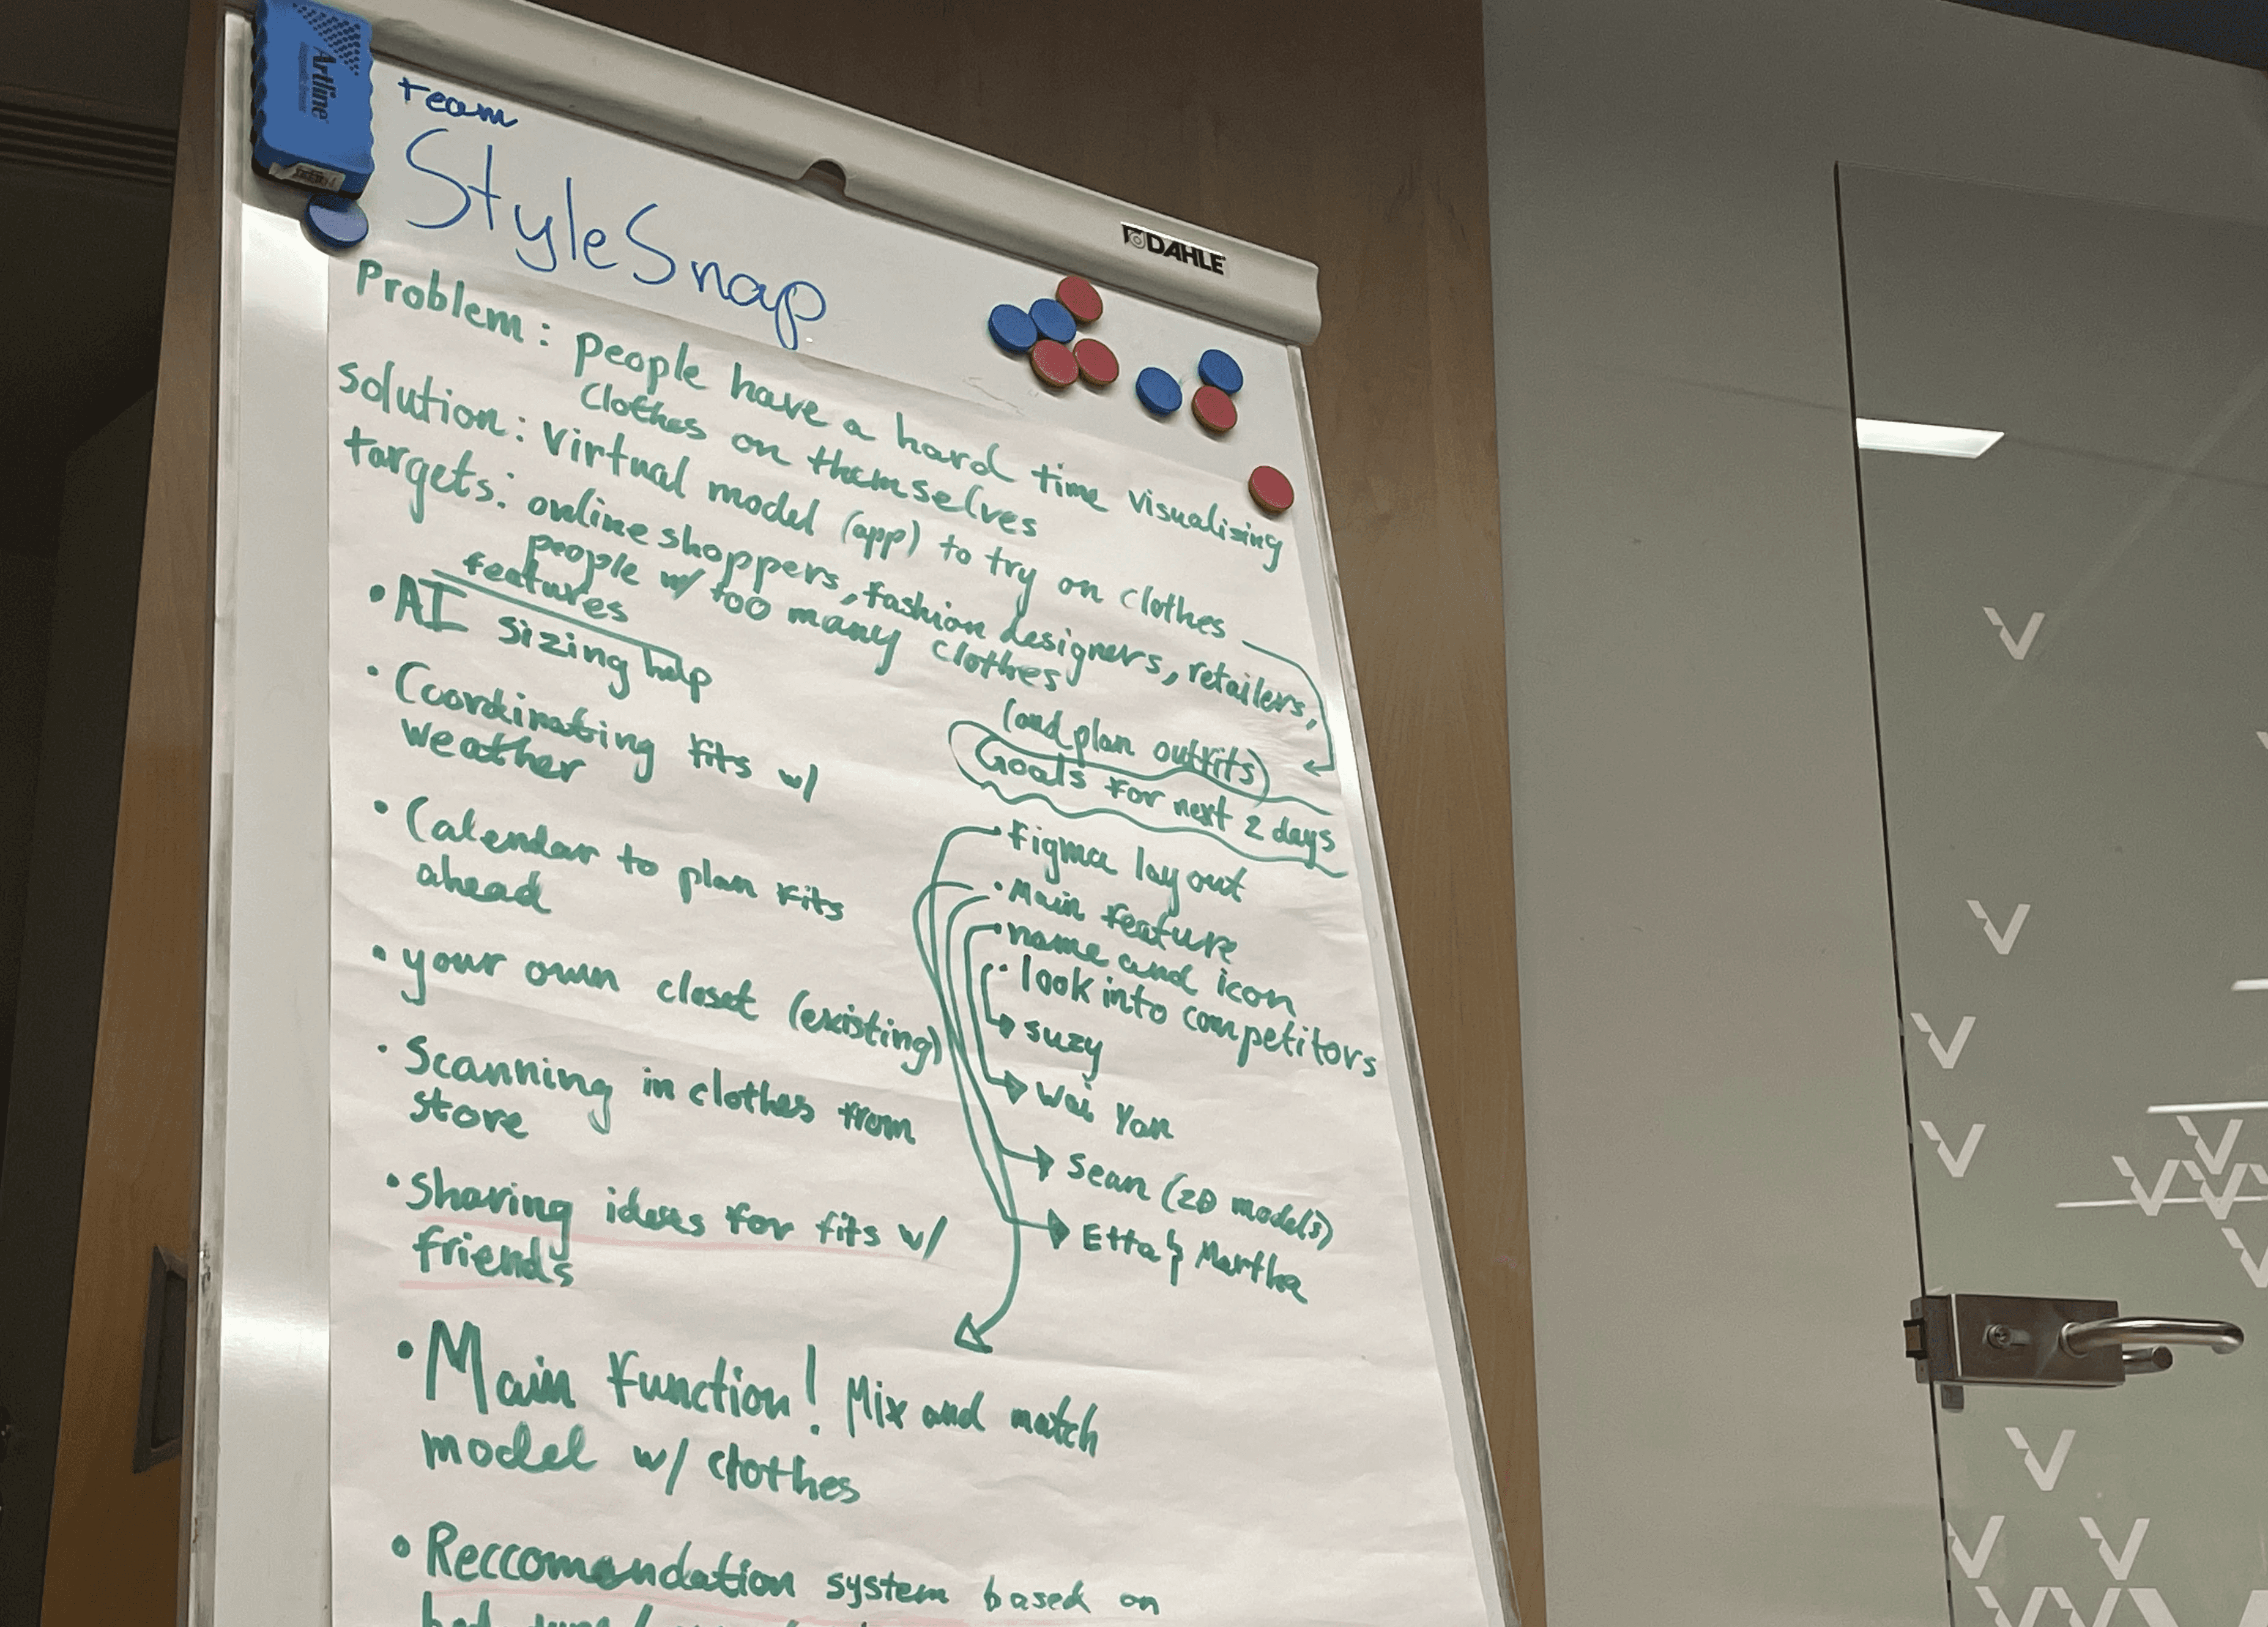 Artline
team
StyleSnap
DAHLE
Problem: people have a hard time visualizing
clothes on themselves
solution: virtual model (app) to try on clothes
(and plan outfits)
targets: online shoppers, fashion designers, retailers,
people w/ too many clothes
features
• AI sizing help
• Coordinating fits w/
weather
• Calendar to plan fits
ahead
• your own closet (existing)
• Scanning in clothes from
store
• sharing ideas for fits w/
friends
• Main function! Mix and match
model w/ clothes
• Reccomendation system based on
Goals for next 2 days
• figma layout
• Main feature
• name and icon
• look into competitors
suzy
Wei Yan
Sean (2D models)
Etta & Martha